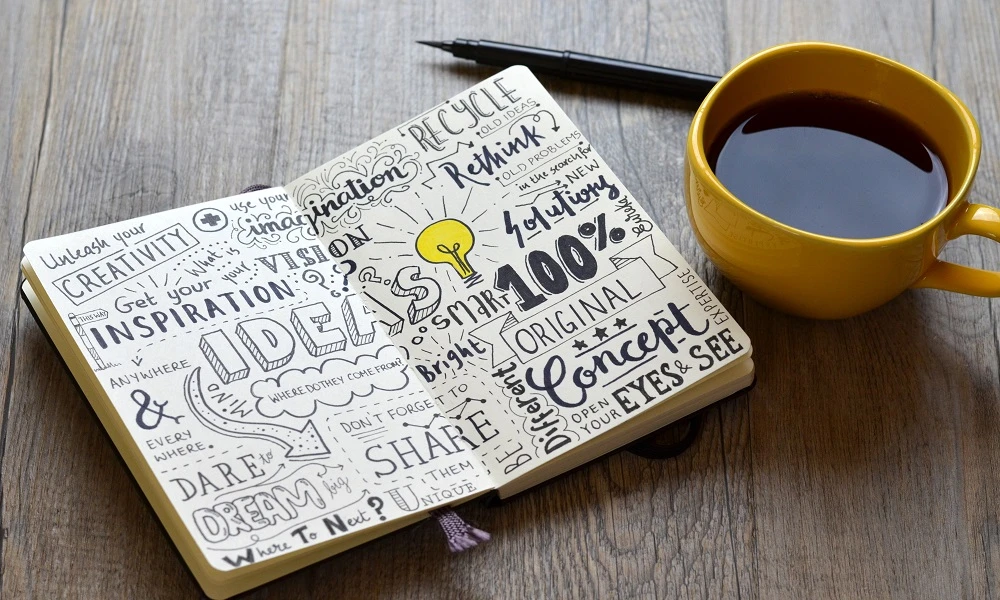 Unleash your
CREATIVITY
use your
imagination
What is
your VISION
Get your
INSPIRATION?
THIS WAY
ANYWHERE
&
EVERY
WHERE.
IDEAS
WHERE DO THEY COME FROM?
DARE to
DREAM big
Where To Next?
DON'T FORGET TO
SHARE
THEM
UNIQUE
RECYCLE
OLD IDEAS
Rethink
OLD PROBLEMS
in the search for
NEW
Solutions
SMART
100%
Bright
ORIGINAL
Concept
EXPERTISE
BE
Different
OPEN
YOUR
EYES & SEE